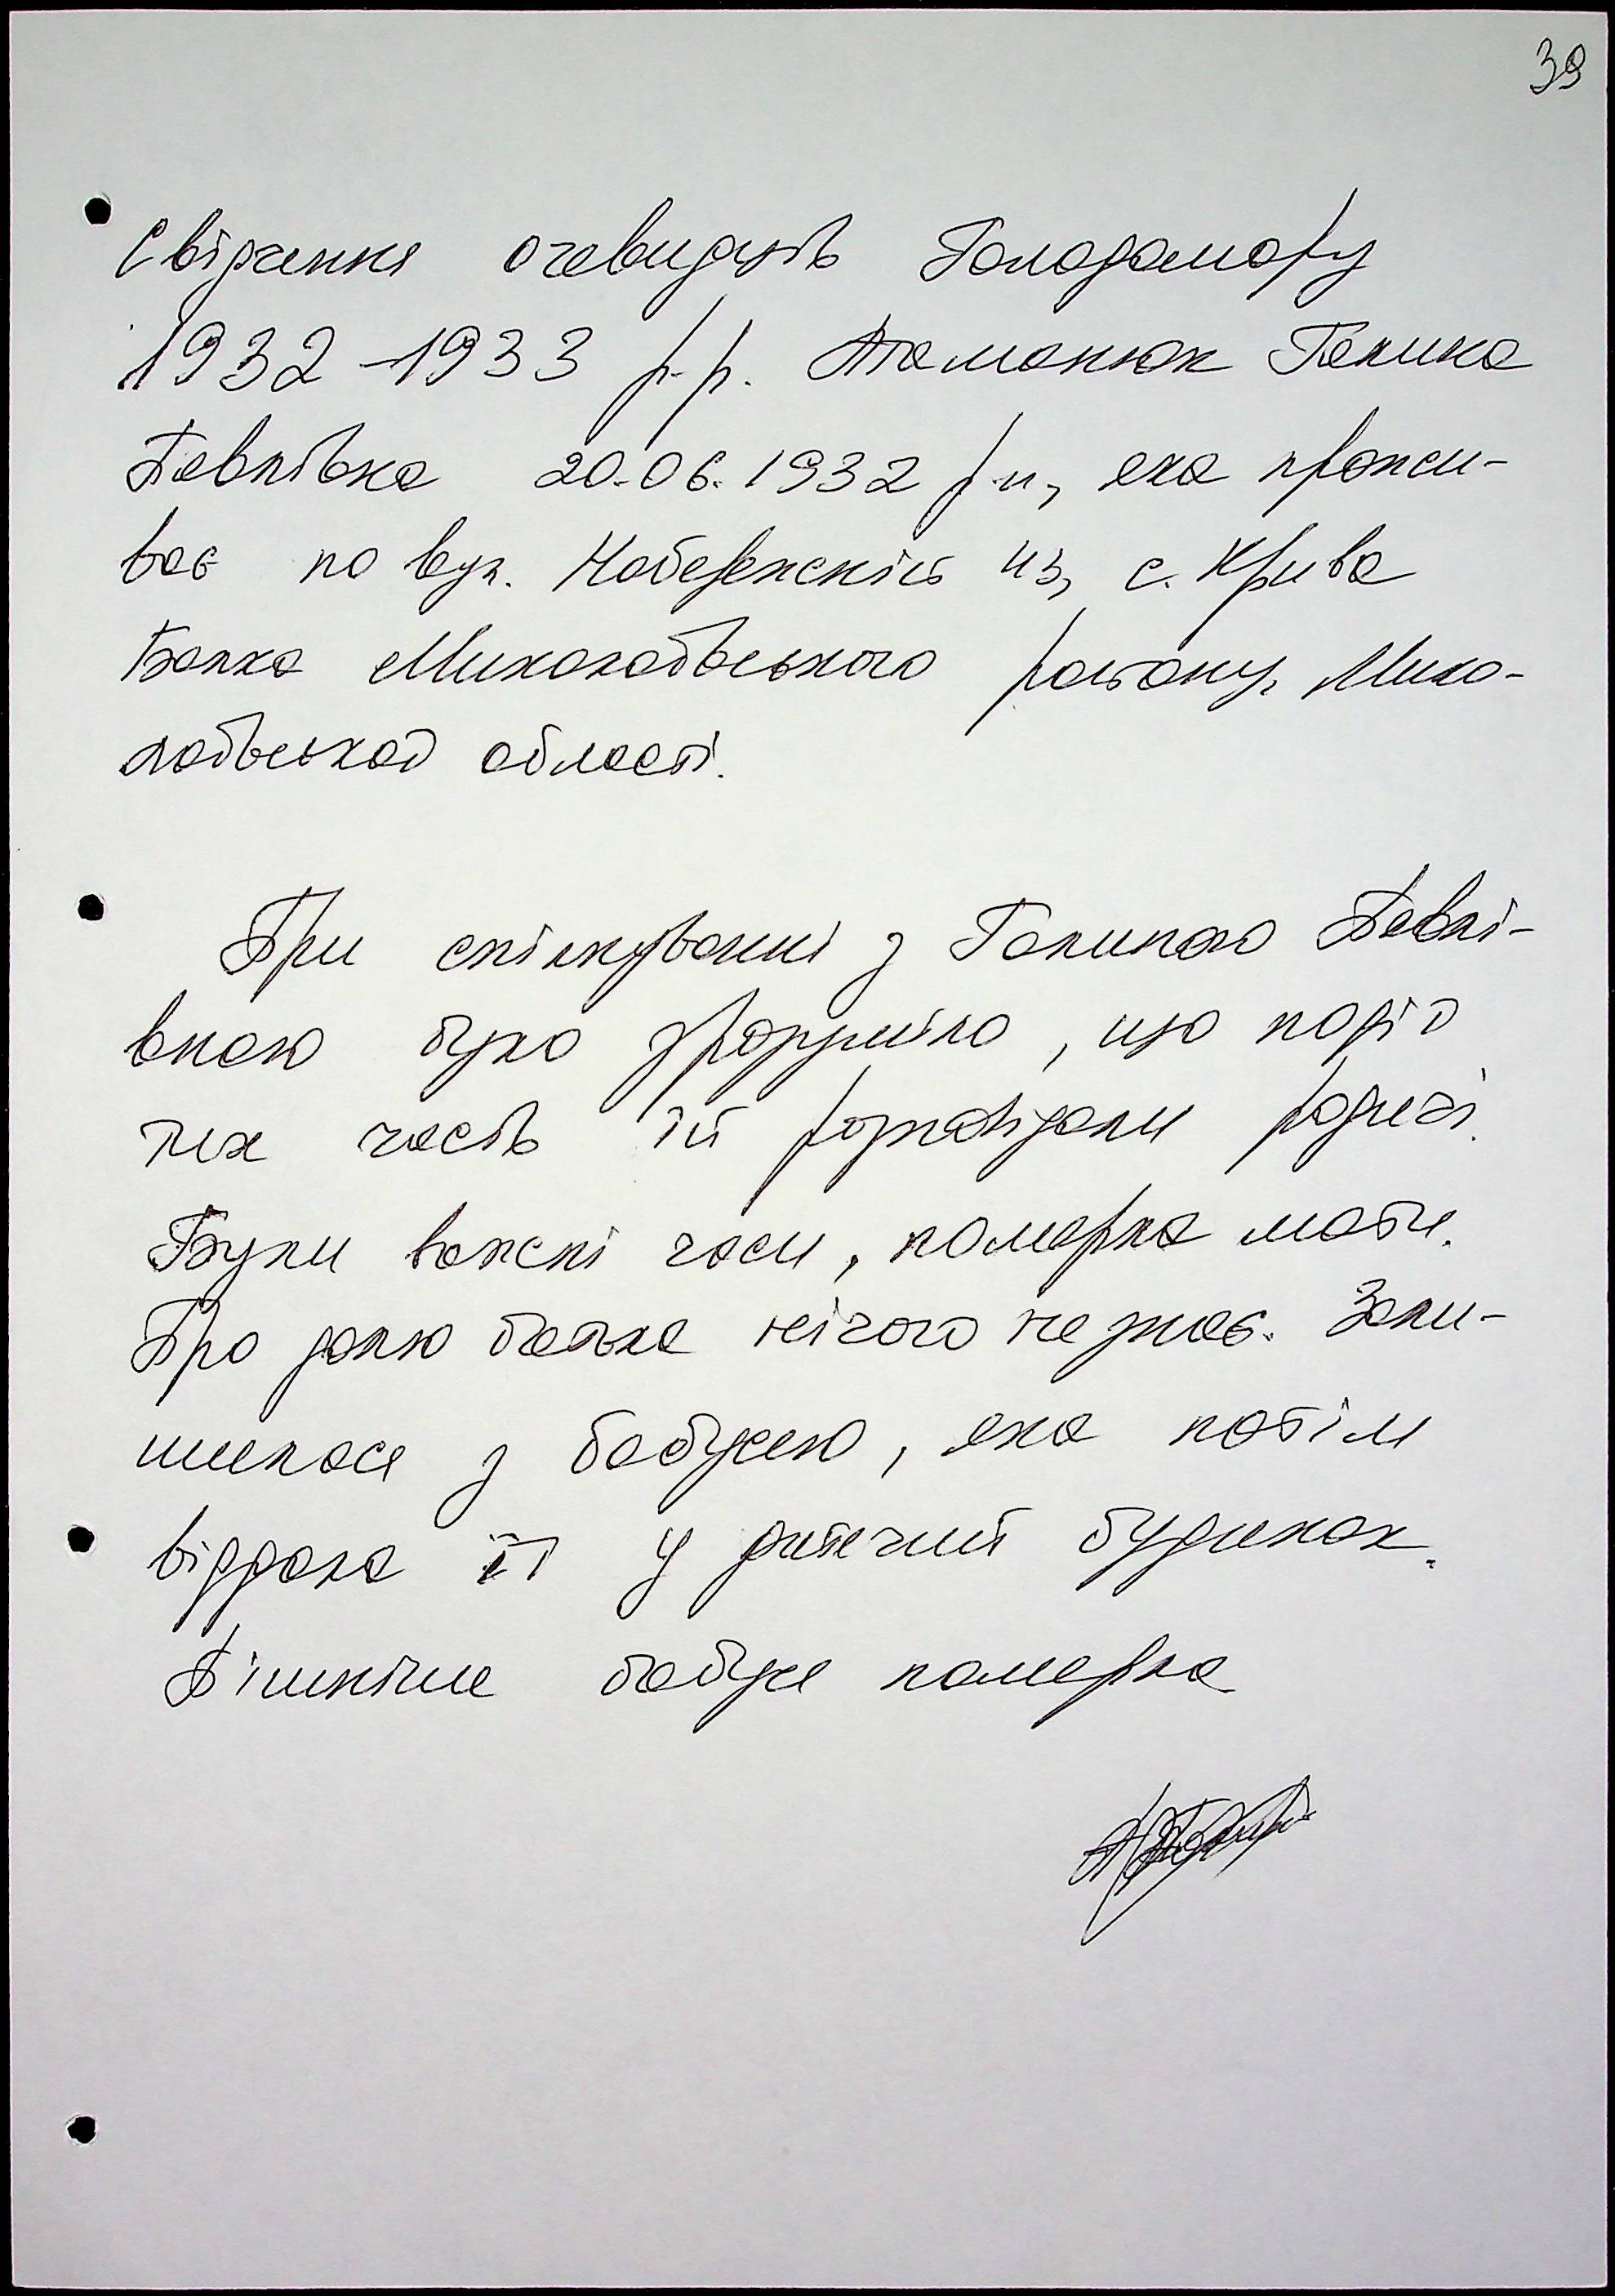 39
Свідчення очевидців Голодомору
1932-1933 р.р. Атаманюк Галина
Павлівна 20.06.1932 р.н, яка прожи-
ває по вул. Набережній 43, с. Крива
Балка Миколаївського району, Мико-
лаївської області.
При спілкуванні з Галиною Павлі-
вною було зрозуміло, що події
тих часів їй розповідали родичі.
Були важкі часи, померла мати.
Про долю батька нічого не знає. Зали-
шилася з бабусею, яка потім
віддала її у дитячий будинок.
Пізніше бабуся померла